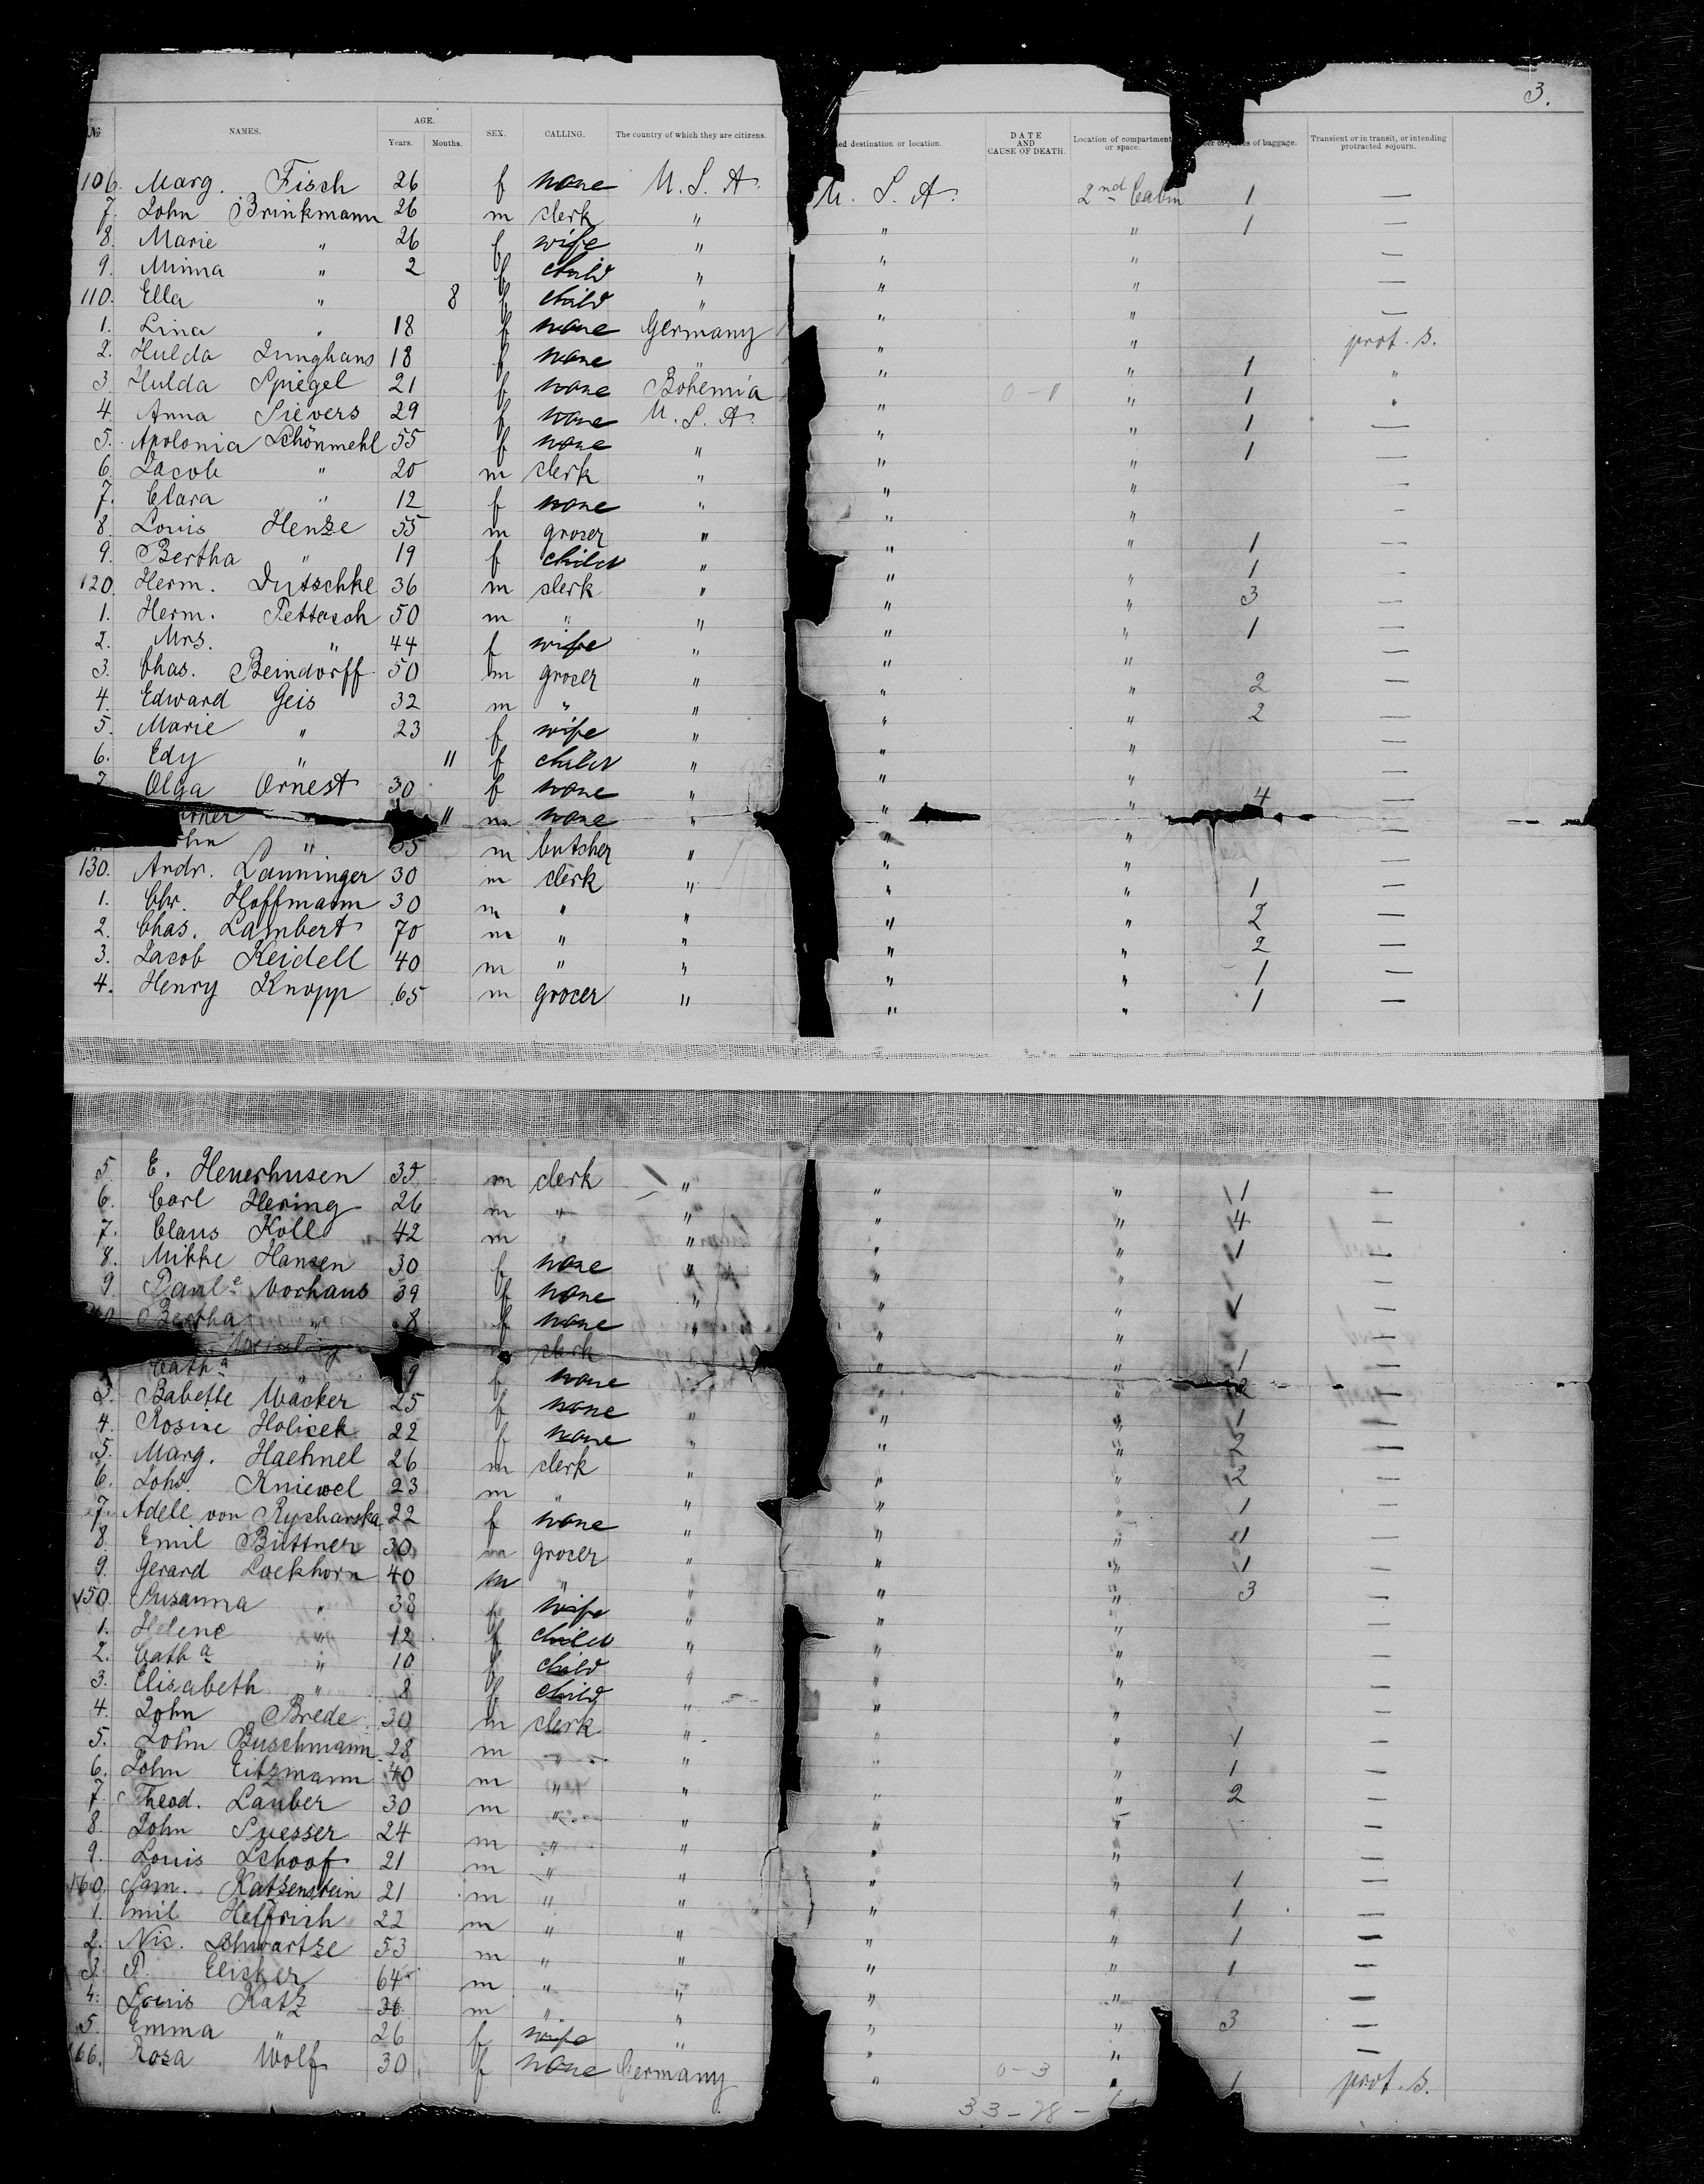 3.
No. NAMES. AGE. Years. Months. SEX. CALLING. The country of which they are citizens. destination or location. DATE AND CAUSE OF DEATH. Location of compartment or space. of baggage. Transient or in transit, or intending protracted sojourn.
106. Marg. Fisch 26 f none U. S. A. U. S. A. 2nd Cabin 1 —
7. John Brinkmann 26 m clerk " " " 1 —
8. Marie " 26 f wife " " " —
9. Minna " 2 f child " " " —
110. Ella " 8 f child " " " —
1. Lina " 18 f none Germany " " prot. s.
2. Hulda Junghans 18 f none " " " 1 "
3. Hulda Spiegel 21 f none Bohemia " 0-11 " 1 "
4. Anna Sievers 29 f none U. S. A. " " 1 —
5. Apolonia Schönmehl 55 f none " " " 1 —
6. Jacob " 20 m clerk " " " —
7. Clara " 12 f none " " " —
8. Louis Henze 55 m grocer " " " 1 —
9. Bertha " 19 f child " " " 1 —
120. Herm. Dutschke 36 m clerk " " " 3 —
1. Herm. Pettasch 50 m " " " " 1 —
2. Mrs. " 44 f wife " " " —
3. Chas. Beindorff 50 m grocer " " " 2 —
4. Edward Geis 32 m " " " " 2 —
5. Marie " 23 f wife " " " —
6. Edy " 11 f child " " " —
7. Olga Ornest 30 f none " " " 4 —
" 11 m none " " " —
" m butcher " " " —
130. Andr. Lanninger 30 m clerk " " " 1 —
1. Chr. Hoffmann 30 m " " " " 2 —
2. Chas. Lambert 70 m " " " " 2 —
3. Jacob Keidell 40 m " " " " 1 —
4. Henry Knopp 65 m grocer " " " 1 —
5. E. Heuerhusen 35 m clerk " " " 1 —
6. Carl Hering 26 m " " " " 4 —
7. Claus Koll 42 m " " " " 1 —
8. Mikke Hansen 30 f none " " " —
9. Paule Vorhaus 39 f none " " " 1 —
Bertha " 8 f none " " " —
clerk " " " 1 —
Catha " 9 f none " " " 2 —
3. Babette Wäcker 25 f none " " " 1 —
4. Rosine Holicek 22 f none " " " 2 —
5. Marg. Haehnel 26 m clerk " " " 2 —
6. Johs. Kniewel 23 m " " " " 1 —
7. Adele von Rycharska 22 f none " " " 1 —
8. Emil Büttner 30 m grocer " " " 1 —
9. Gerard Lockhorn 40 m " " " " 3 —
150. Susanna " 38 f wife " " "
1. Helene " 12 f child " " "
2. Catha " 10 f child " " "
3. Elisabeth " 8 f child " " "
4. John Brede 30 m clerk " " " 1 —
5. John Buschmann 28 m " " " " 1 —
6. John Eitzmann 40 m " " " " 2 —
7. Theod. Lauber 30 m " " " " —
8. John Suesser 24 m " " " " —
9. Louis Schoof 21 m " " " " 1 —
160. Sam. Katzenstein 21 m " " " " 1 —
1. Emil Helfrich 22 m " " " " 1 —
2. Nic. Schwartze 53 m " " " " 1 —
3. P. Elicker 64 m " " " " —
4. Louis Katz 36 m " " " " 3 —
5. Emma " 26 f wife " " " —
166. Rosa Wolf 30 f none Germany " 0-3 " 1 prot. s.
33-28-